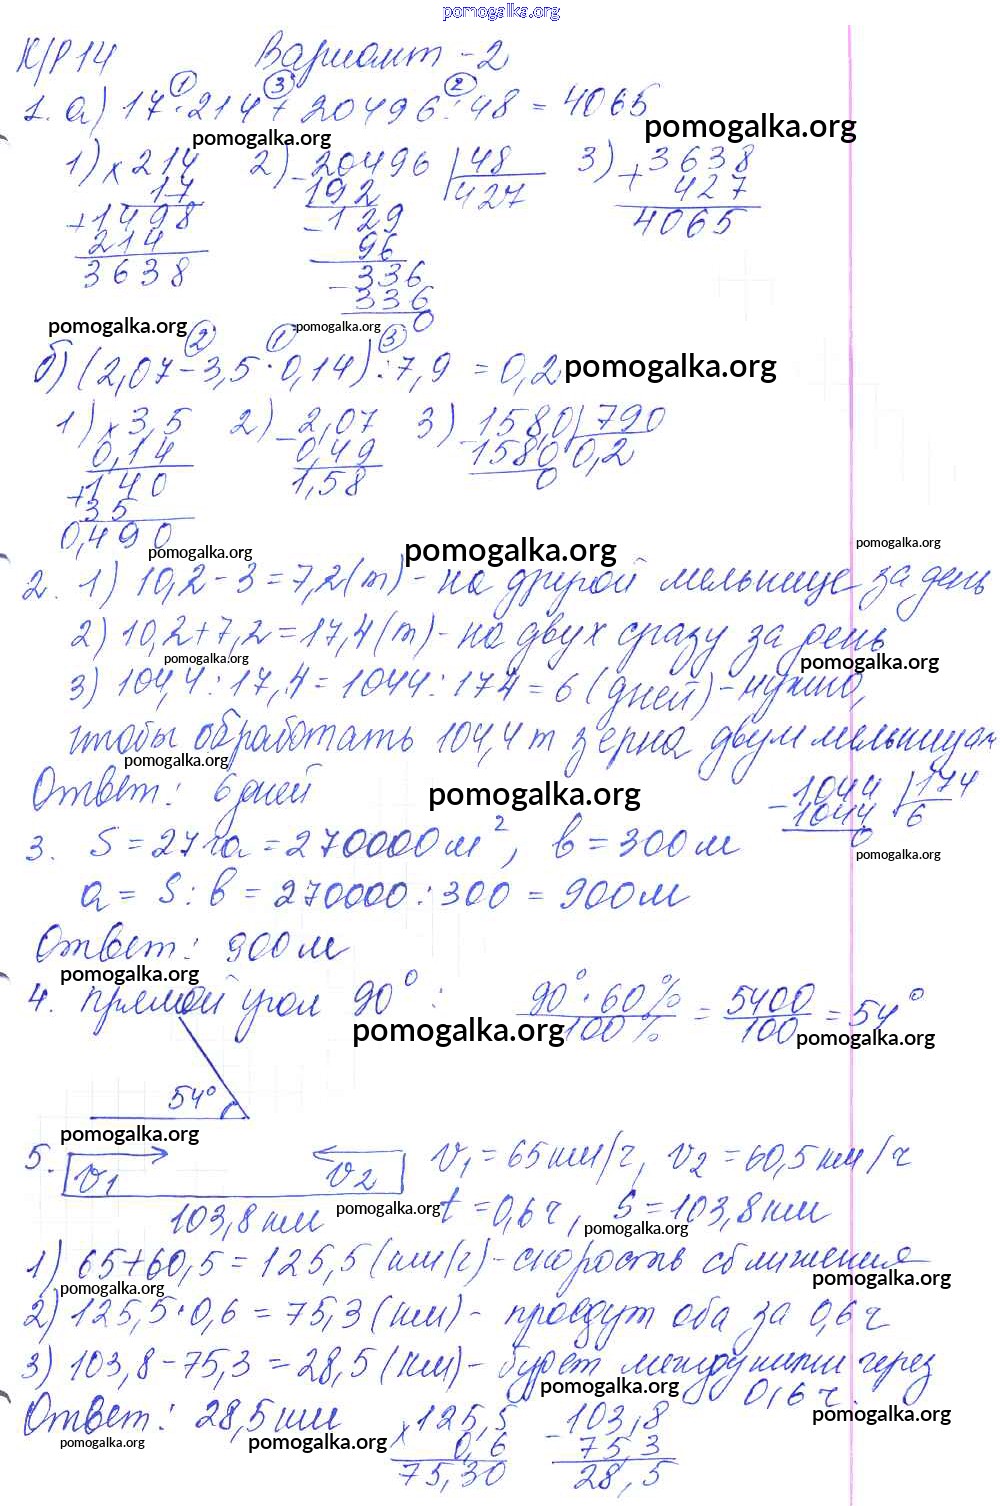 pomogalka.org
К/Р 14 Вариант - 2
① ③ ②
1. а) 17 · 214 + 20496 : 48 = 4065
pomogalka.org pomogalka.org
1) × 214 2) - 20496 | 48 3) + 3638
17 192 427 427
+ 1498 - 129 4065
214 96
3638 - 336
336
0
pomogalka.org pomogalka.org
② ① ③
б) (2,07 - 3,5 · 0,14) : 7,9 = 0,2 pomogalka.org
1) × 3,5 2) - 2,07 3) - 158,0 | 790
0,14 0,49 1580 0,2
+ 140 1,58 0
35
0,490
pomogalka.org pomogalka.org pomogalka.org
2. 1) 10,2 - 3 = 7,2 (т) - на другой мельнице за день
2) 10,2 + 7,2 = 17,4 (т) - на двух сразу за день
pomogalka.org pomogalka.org
3) 104,4 : 17,4 = 1044 : 174 = 6 (дней) - нужно,
чтобы обработать 104,4 т зерна двум мельницам
pomogalka.org
Ответ: 6 дней pomogalka.org - 1044 | 174
1044 6
0
pomogalka.org
3. S = 27 га = 270000 м², b = 300 м
a = S : b = 270000 : 300 = 900 м
Ответ: 900 м
pomogalka.org
4. прямой угол 90° : 90° · 60% / 100% = 5400 / 100 = 54°
pomogalka.org pomogalka.org
54°
pomogalka.org
5. V1 V2 V1 = 65 км/ч, V2 = 60,5 км/ч
103,8 км pomogalka.org t = 0,6 ч, S = 103,8 км
pomogalka.org
1) 65 + 60,5 = 125,5 (км/ч) - скорость сближения
pomogalka.org pomogalka.org
2) 125,5 · 0,6 = 75,3 (км) - пройдут оба за 0,6 ч
3) 103,8 - 75,3 = 28,5 (км) - будет между ними через
pomogalka.org 0,6 ч.
Ответ: 28,5 км × 125,5 - 103,8 pomogalka.org
pomogalka.org pomogalka.org 0,6 75,3
75,30 28,5